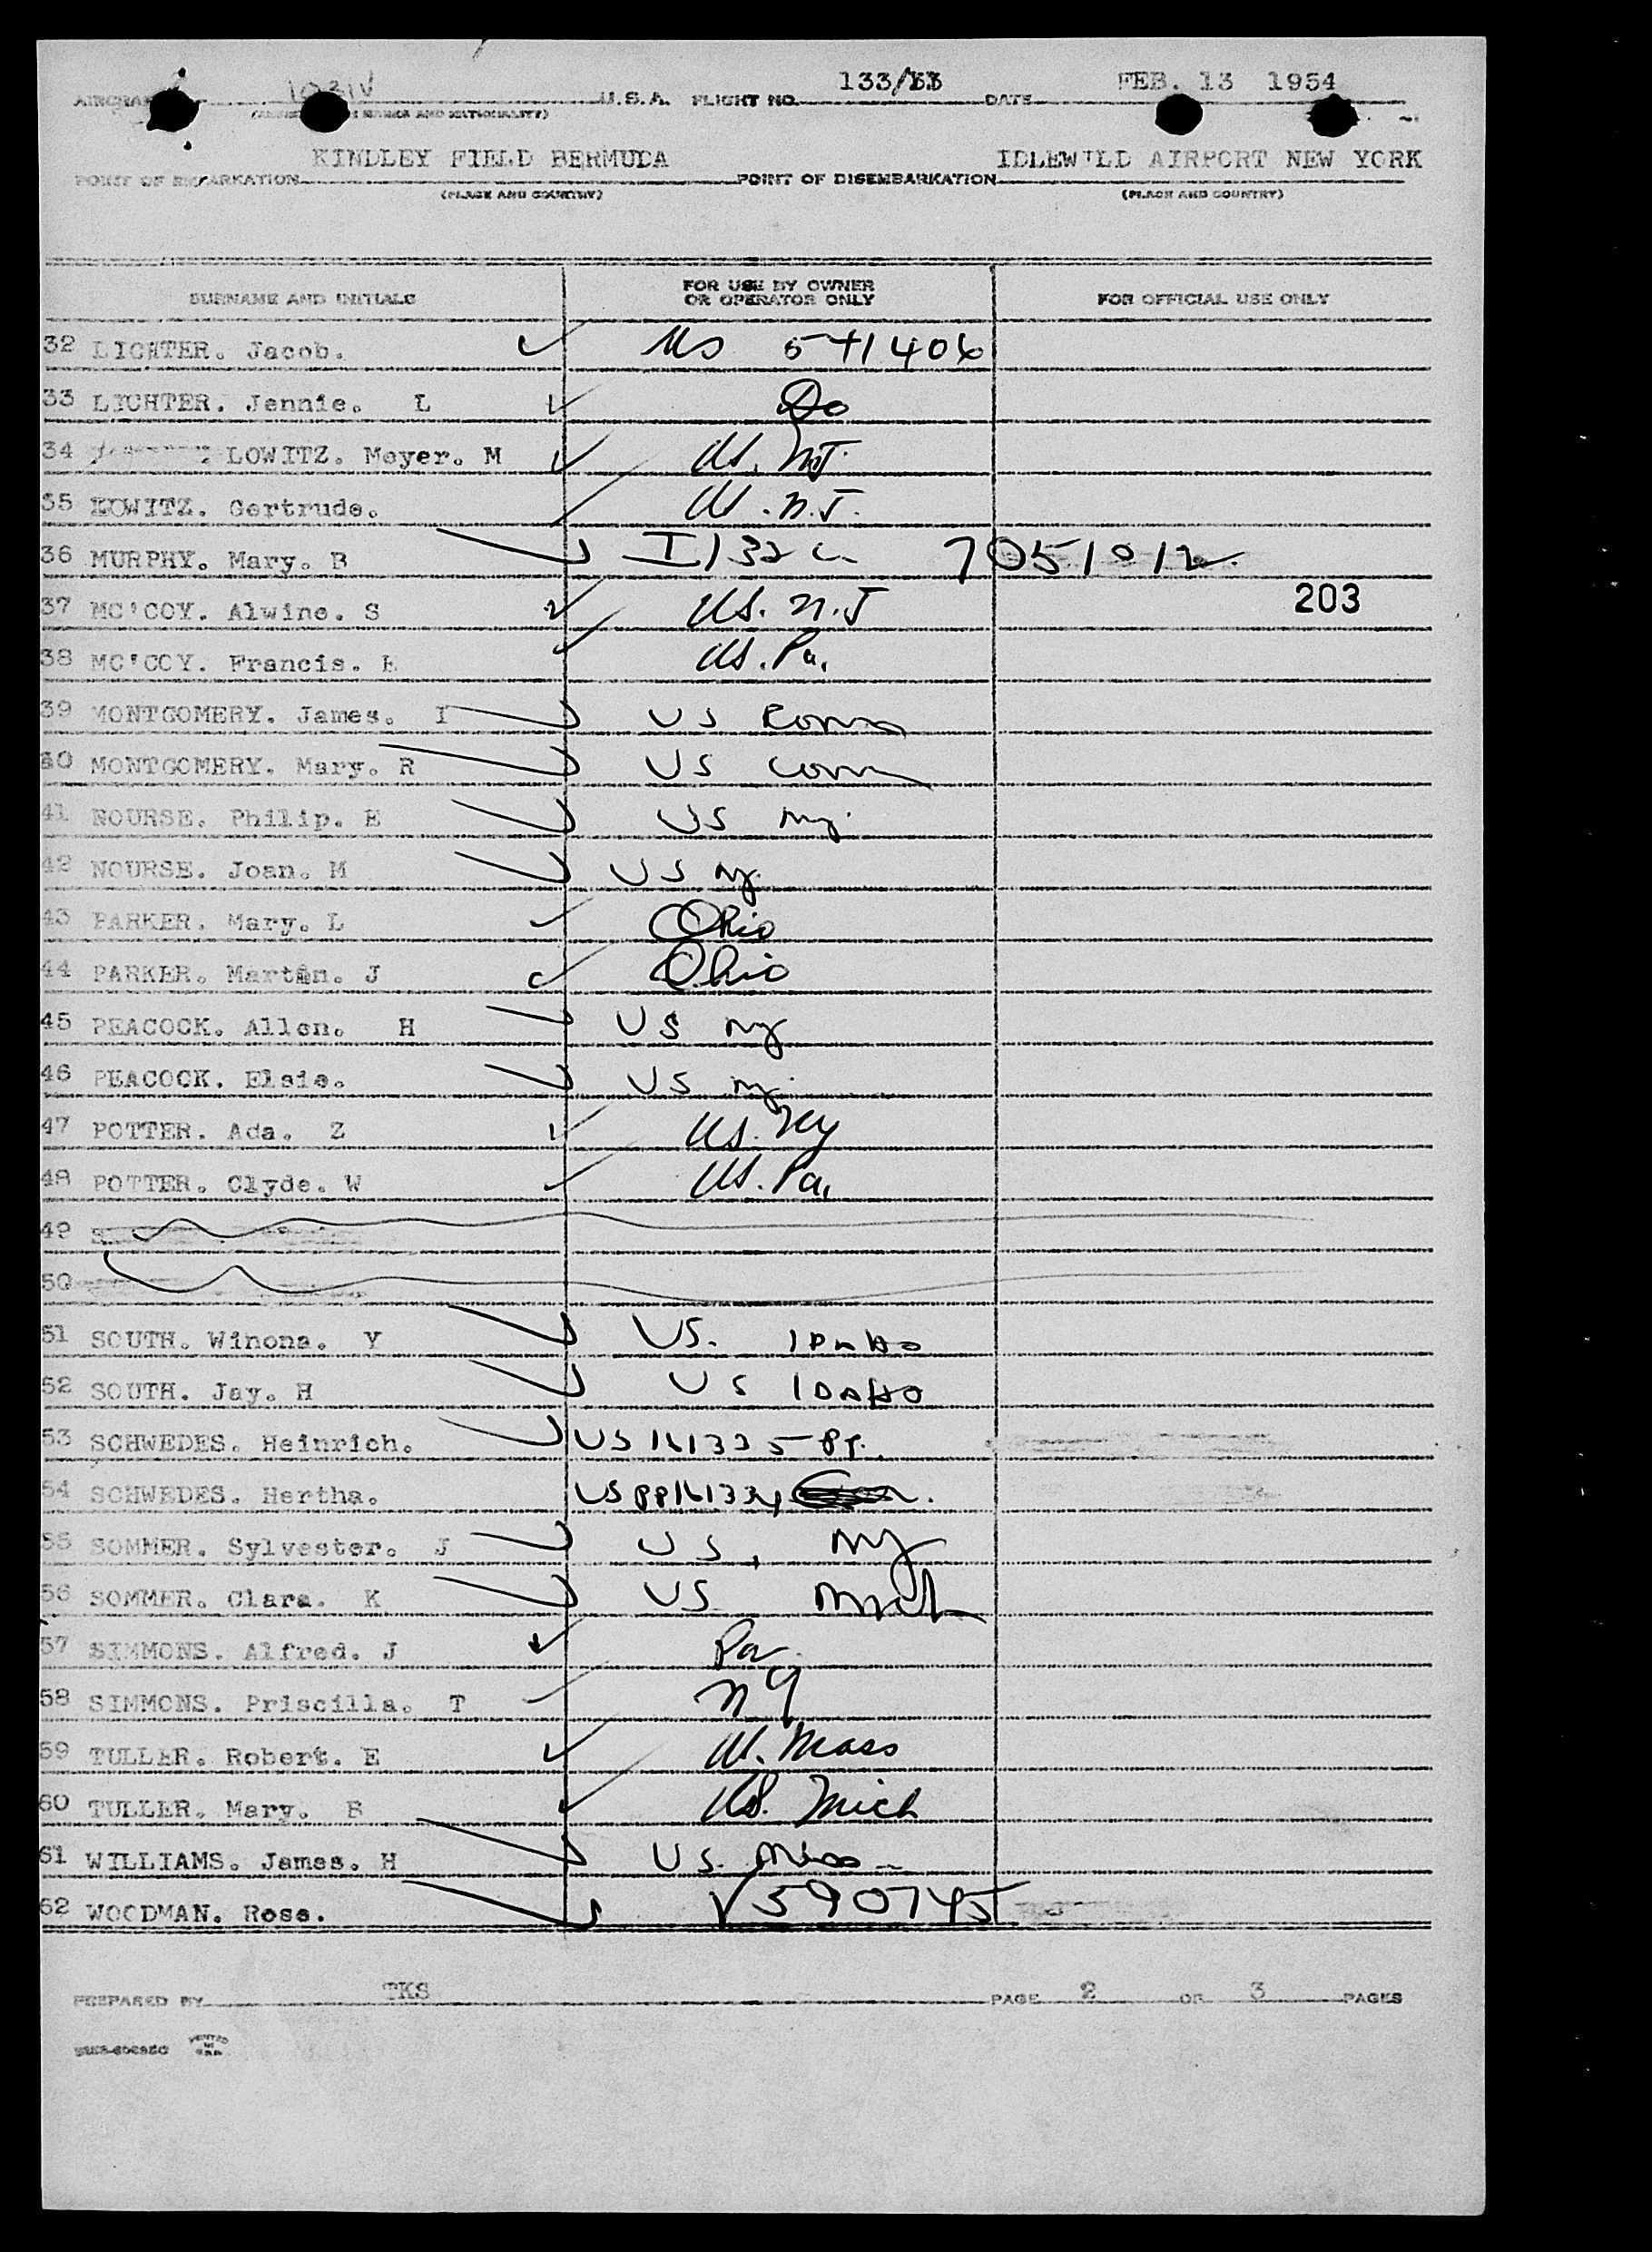 U.S.A. FLIGHT NO. 133/ DATE FEB. 13 1954
KINDLEY FIELD BERMUDA IDLEWILD AIRPORT NEW YORK
POINT OF EMBARKATION POINT OF DISEMBARKATION
(PLACE AND COUNTRY) (PLACE AND COUNTRY)
SURNAME AND INITIALS FOR USE BY OWNER OR OPERATOR ONLY FOR OFFICIAL USE ONLY
32 LICHTER. Jacob. US 541406
33 LICHTER. Jennie. L Do
34 LOWITZ. Meyer. M US. NJ.
35 LOWITZ. Gertrude. US. N.J.
36 MURPHY. Mary. B I132 7051012
37 MC'COY. Alwine. S US. N.J 203
38 MC'COY. Francis. US. Pa.
39 MONTGOMERY. James. I US Conn
40 MONTGOMERY. Mary. R US Conn
41 NOURSE. Philip. E US NY.
42 NOURSE. Joan. M US NY.
43 PARKER. Mary. L Ohio
44 PARKER. Martin. J Ohio
45 PEACOCK. Allen. H US NY
46 PEACOCK. Elsie. US NY.
47 POTTER. Ada. Z US. NY
48 POTTER. Clyde. W US. Pa.
49
50
51 SOUTH. Winona. Y US. IDAHO
52 SOUTH. Jay. H US IDAHO
53 SCHWEDES. Heinrich. US 161335 PP.
54 SCHWEDES. Hertha. US PP161334
55 SOMMER. Sylvester. J US, NY
56 SOMMER. Clara. K US Mich
57 SIMMONS. Alfred. J Pa.
58 SIMMONS. Priscilla. T NY
59 TULLER. Robert. E US. Mass
60 TULLER. Mary. B US. Mich
61 WILLIAMS. James. H US. Miss
62 WOODMAN. Rose. V590745
PREPARED BY TKS PAGE 2 OF 3 PAGES
PRINTED IN U.S.A.